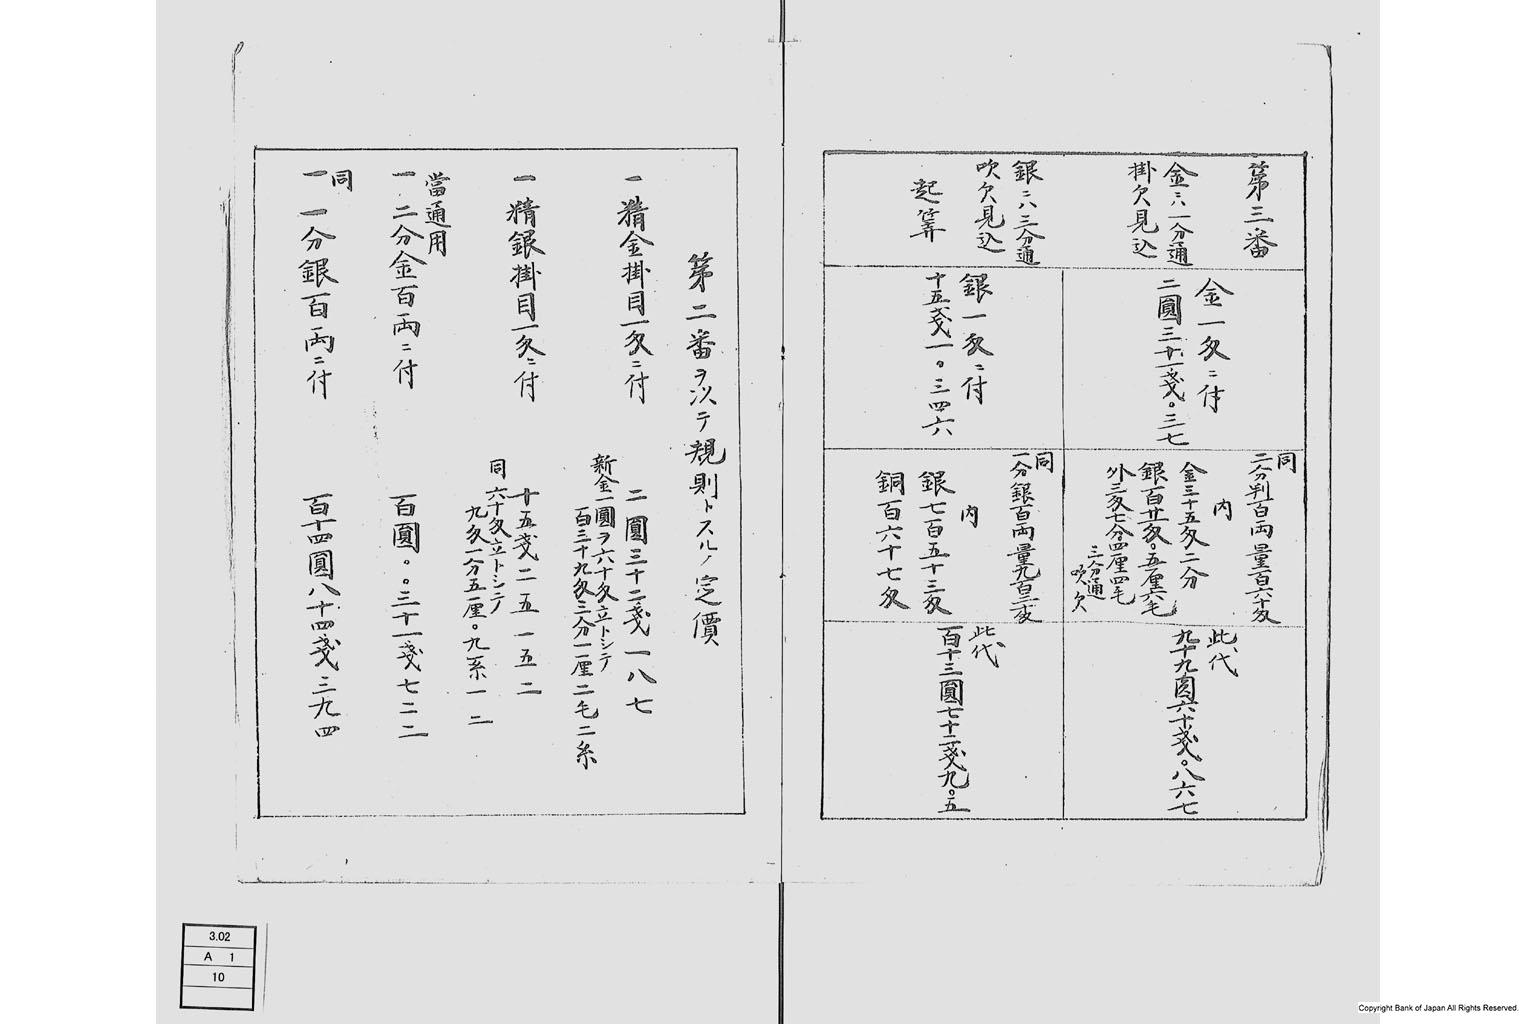 第三番
金ニハ一分通
掛欠見込
銀ニハ三分通
吹欠見込
起筭
金一匁ニ付
二圓三十一戔。三七
銀一匁ニ付
十五戔一。三四六
同
二分判百両量百六十匁
内
金三十五匁二分
銀百廿匁。五厘六毛
外三匁七分四厘四毛
三分通
吹欠
同
一分銀百両量九百三匁
内
銀七百五十三匁
銅百六十七匁
此代
九十九圓六十戔。八六七
此代
百十三圓七十二戔九。五
第二番ヲ以テ規則トスルノ定價
一精金掛目一匁ニ付
二圓三十二戔一八七
新金一圓ヲ六十匁立トシテ
百三十九匁三分一厘二毛二糸
一精銀掛目一匁ニ付
十五戔二五一五二
同六十匁立トシテ
九匁一分五厘。九系一二
當通用
一二分金百両ニ付
百圓。。三十一戔七二二
同
一一分銀百両ニ付
百十四圓八十四戔三九四
3.02
A 1
10
Copyright Bank of Japan All Rights Reserved.